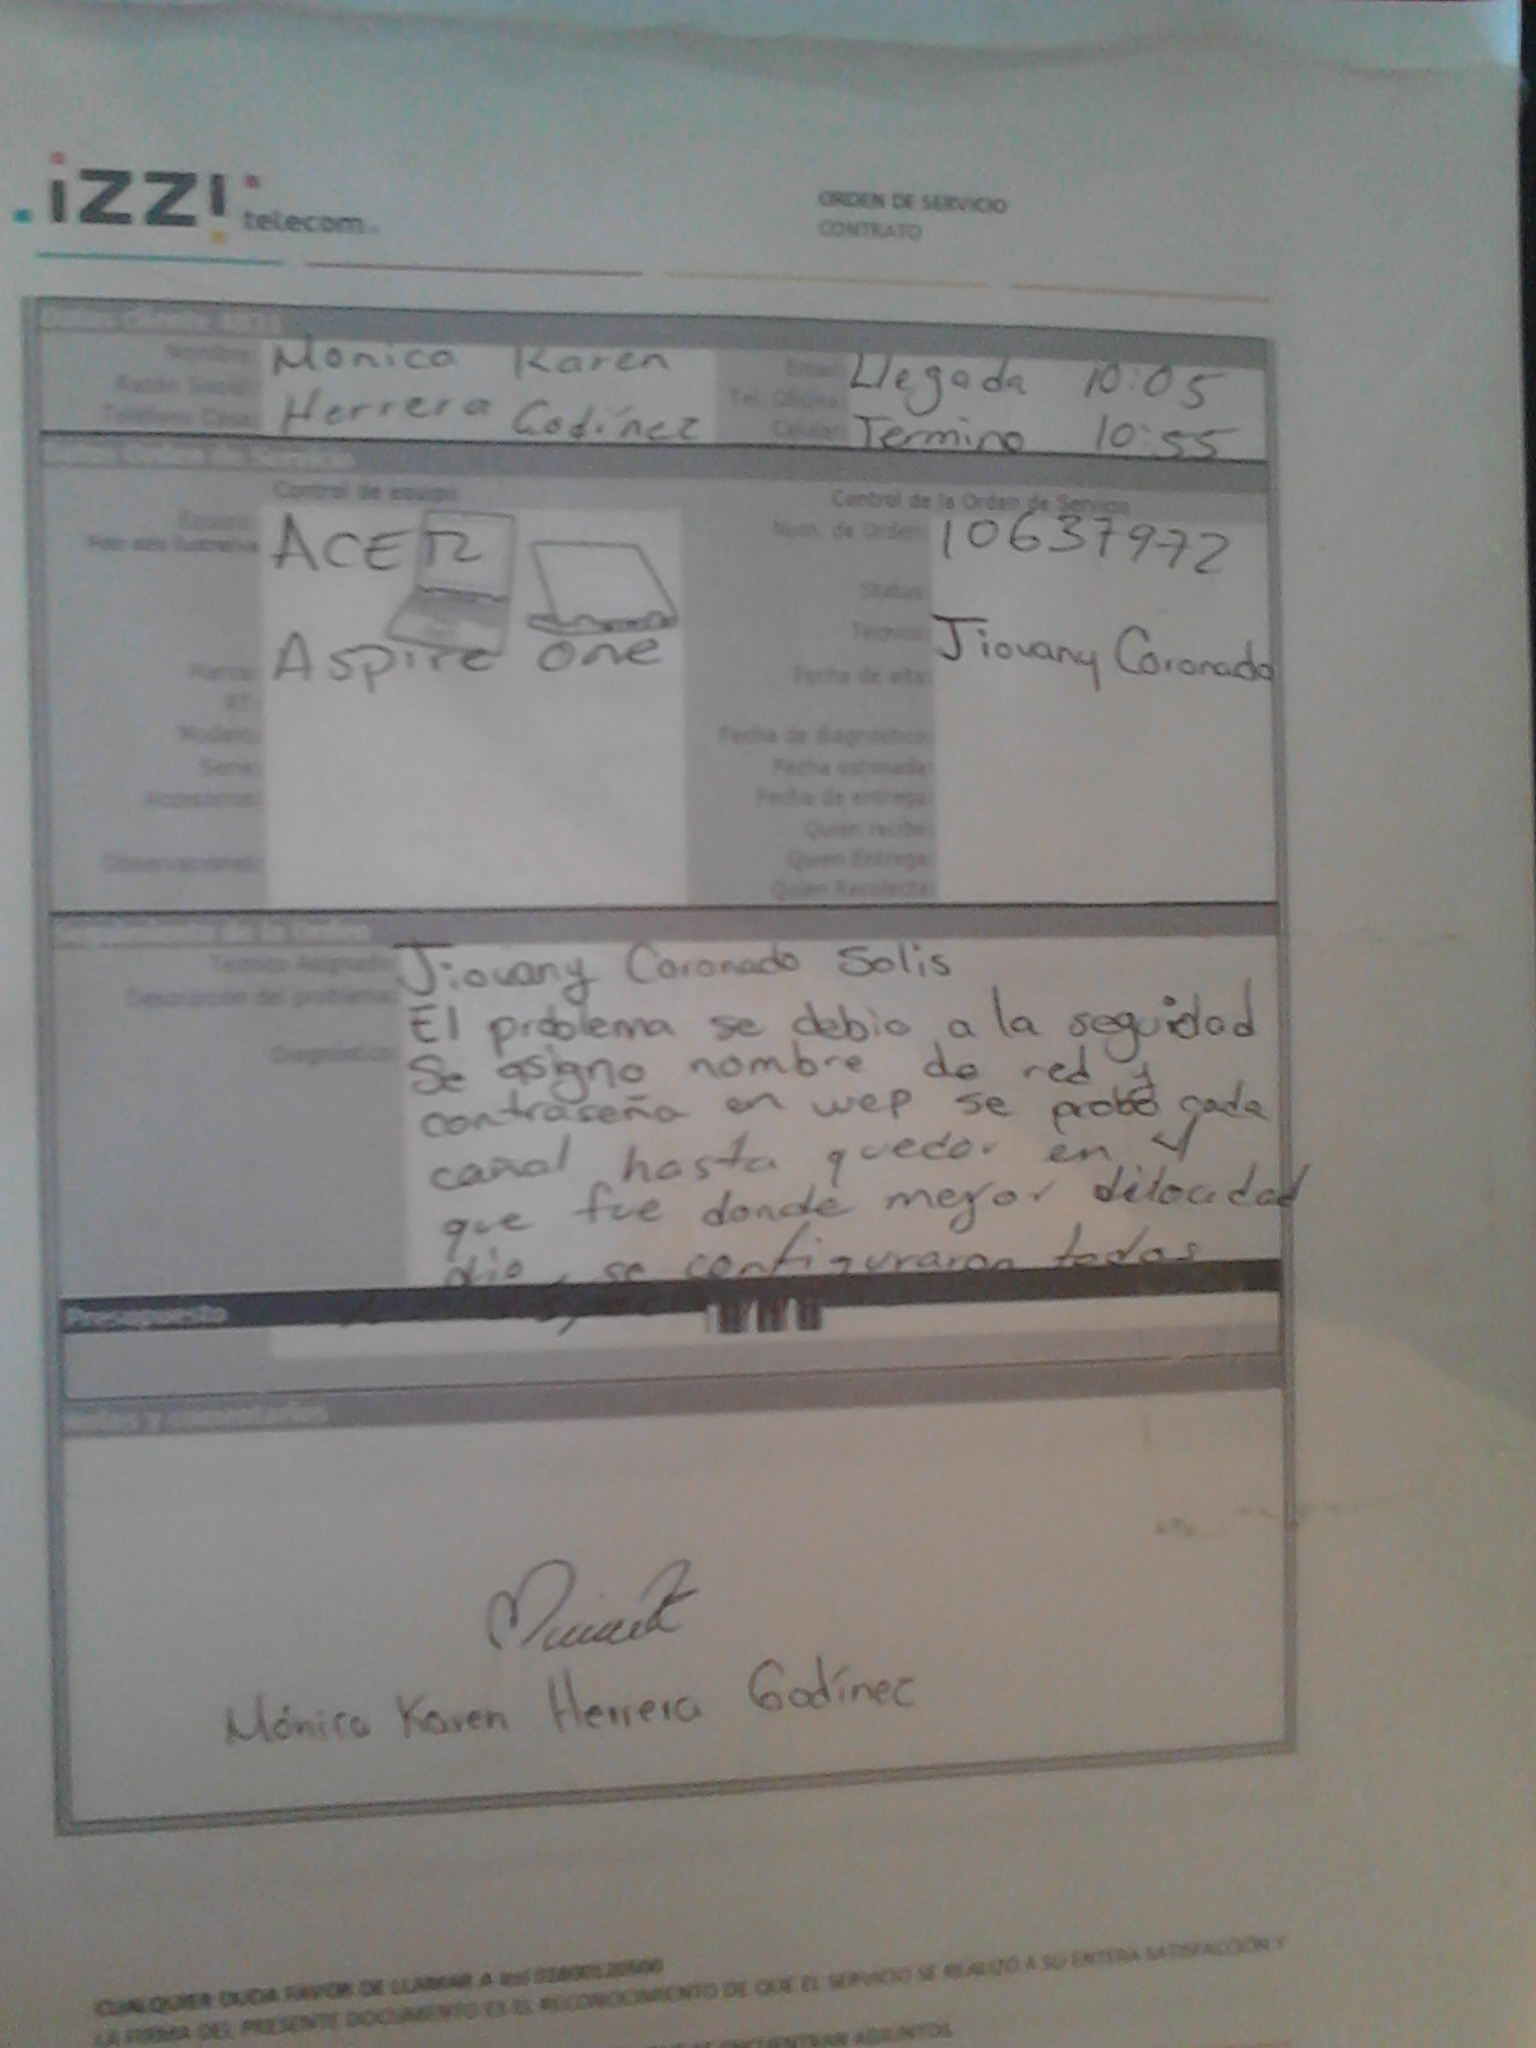 izzi telecom
ORDEN DE SERVICIO
CONTRATO
Datos cliente
Nombre: Monica Karen
Razón Social:
Teléfono Casa: Herrera Godínez
Email: Llegada 10:05
Tel. Oficina:
Celular: Termino 10:55
Datos Orden de Servicio
Control de equipo
Equipo: ACER
Foto solo ilustrativa
Marca: Aspire one
Modelo:
Serie:
Accesorios:
Observaciones:
Control de la Orden de Servicio
Num. de Orden: 10637972
Status:
Técnico: Jiovany Coronado
Fecha de alta:
Fecha de diagnóstico:
Fecha estimada:
Fecha de entrega:
Quien recibe:
Quien Entrega:
Quien Recolecta:
Seguimiento de la Orden
Técnico Asignado: Jiovany Coronado Solis
Descripción del problema:
El problema se debio a la seguidad
Diagnóstico:
Se asigno nombre de red y
contraseña en wep se probo cada
canal hasta quedar en 4
que fue donde mejor dilocidad
dio, se configuraron todas
Presupuesto
Notas y comentarios
Mónica Karen Herrera Godínez
CUALQUIER DUDA FAVOR DE LLAMAR A
LA FIRMA DEL PRESENTE DOCUMENTO ES EL RECONOCIMIENTO DE QUE EL SERVICIO SE REALIZO A SU ENTERA SATISFACCIÓN Y
SE ENCUENTRAN ADJUNTOS.